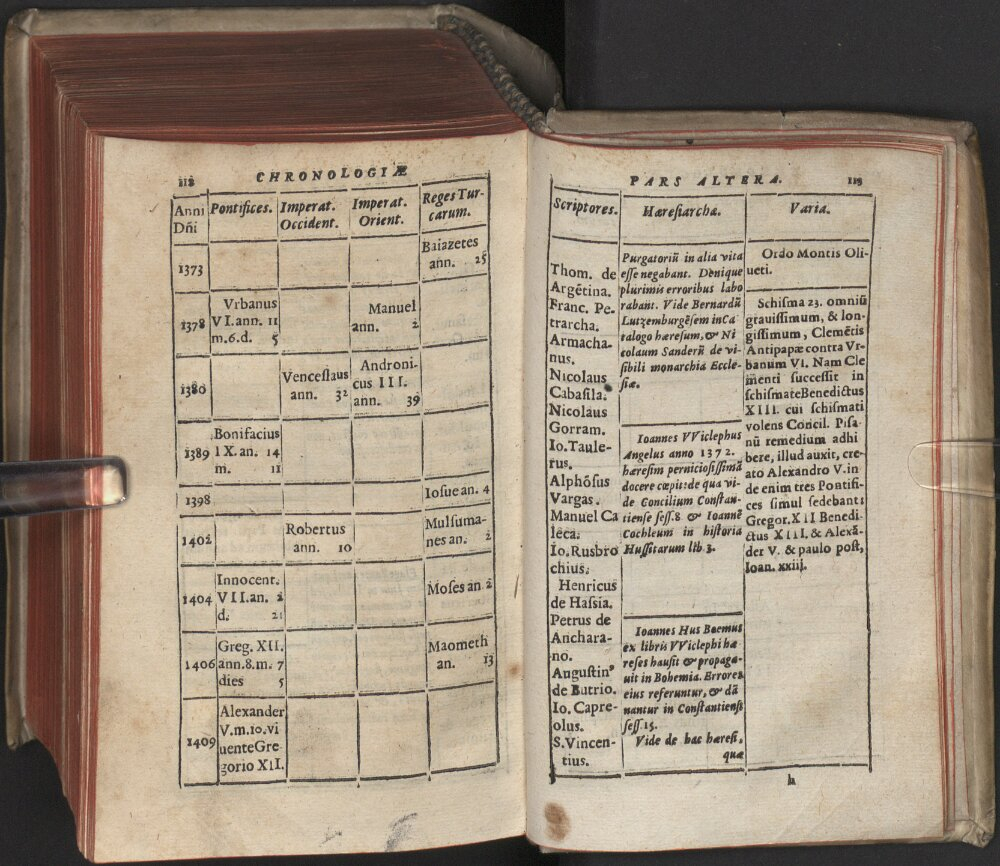 112 CHRONOLOGIÆ
Anni Dñi
Pontifices.
Imperat.
Occident.
Imperat.
Orient.
Reges Tur-
carum.
1373
Baiazetes
ann. 25
1378
Vrbanus
VI. ann. 11
m.6.d. 5
Manuel
ann. 2
1380
Venceslaus
ann. 32
Androni-
cus III.
ann. 39
1389
Bonifacius
IX. an. 14
m. 11
1398
Iosue an. 4
1402
Robertus
ann. 10
Mulsuma-
nes an. 2
1404
Innocent.
VII. an. 2
d. 21
Moses an. 2
1406
Greg. XII.
ann. 8. m. 7
dies 5
Maometh
an. 13
1409
Alexander
V. m. 10. vi
uente Gre-
gorio XII.
PARS ALTERA. 113
Scriptores.
Thom. de
Argẽtina.
Franc. Pe-
trarcha.
Armacha-
nus.
Nicolaus
Cabasila.
Nicolaus
Gorram.
Io. Taule-
rus.
Alphõsus
Vargas.
Manuel Ca
leca.
Io. Rusbro
chius.
Henricus
de Hassia.
Petrus de
Anchara-
no.
Augustin⁹
de Butrio.
Io. Capre-
olus.
S. Vincen-
tius.
Hæresiarchæ.
Purgatoriũ in alia vita
esse negabant. Denique
plurimis erroribus labo
rabant. Vide Bernardũ
Lutzemburgẽsem in Ca
talogo hæresum, & Ni
colaum Sanderũ de vi-
sibili monarchia Eccle-
siæ.
Ioannes VViclephus
Angelus anno 1372.
hæresim perniciosissimã
docere cœpit: de qua vi-
de Concilium Constan-
tiense sess. 8 & Ioannẽ
Cochleum in historia
Hussitarum lib 3.
Ioannes Hus Boemus
ex libris VViclephi hæ
reses hausit & propaga-
uit in Bohemia. Errores
eius referuntur, & dã
nantur in Constantiensi
sess. 15.
Vide de hac hæresi,
quæ
Varia.
Ordo Montis Oli-
ueti.
Schisma 23. omniũ
grauissimum, & lon-
gissimum, Clemẽtis
Antipapæ contra Vr-
banum VI. Nam Cle
menti successit in
schismate Benedictus
XIII. cui schismati
volens Concil. Pisa-
nũ remedium adhi
bere, illud auxit, cre-
ato Alexandro V. in
de enim tres Pontifi-
ces simul sedebant:
Gregor. XII Benedi-
ctus XIII. & Alexã-
der V. & paulo post,
Ioan. xxiij.
h